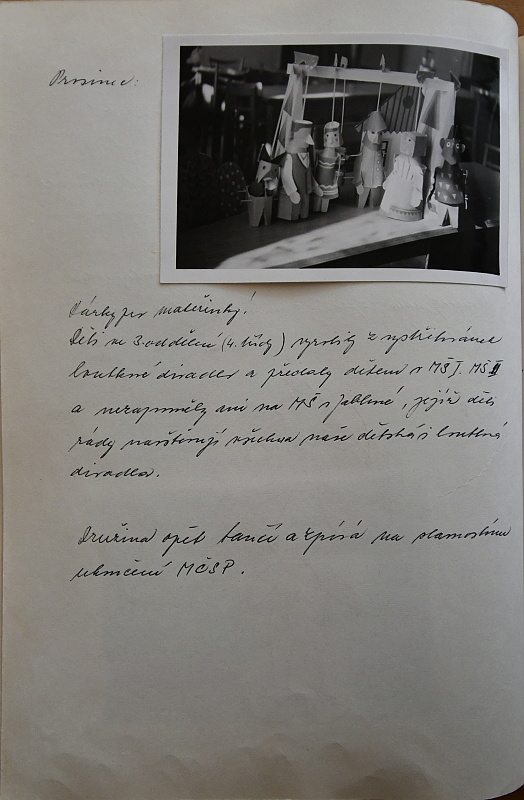 Prosinec:
Dárky pro mateřinky!
Děti ve 3. oddělení (4. třídy) vyrobily z vystřihovánek
loutkové divadlo a předaly dětem v MŠ I. MŠ II
a nezapoměly ani na MŠ v Jablonné, jejíž děti
rády navštěvují všechna naše dětská i loutková
divadla.
Družina opět tančí a zpívá na slavnostním
ukončení MČSP.